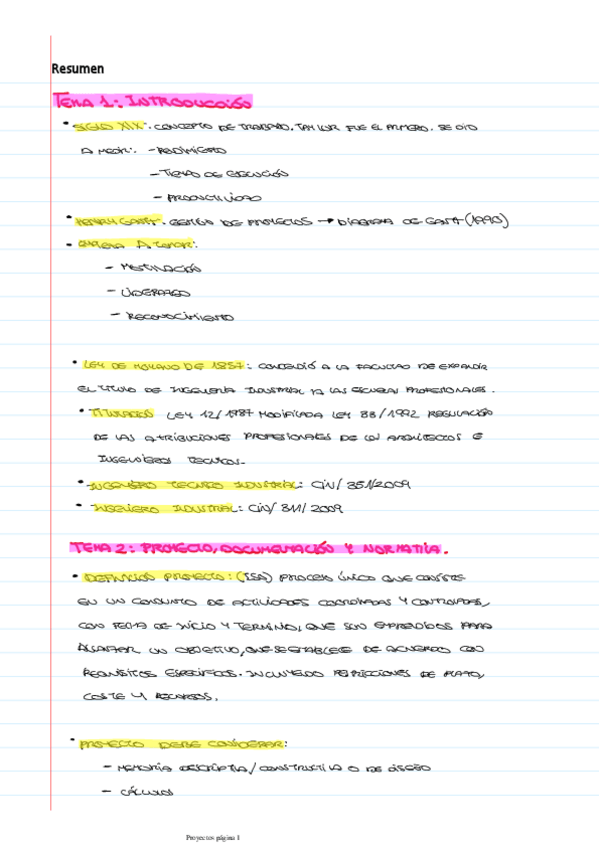 Resumen
TEMA 1: INTRODUCCIÓN
• SIGLO XIX: CONCEPTO DE TRABAJO. TAYLOR FUE EL PRIMERO. SE DIO
A MEDIR: - RENDIMIENTO
- TIEMPO DE EJECUCIÓN
- PRODUCTIVIDAD
• HENRY GANTT. GESTIÓN DE PROYECTOS → DIAGRAMA DE GANTT (1990)
•
- MOTIVACIÓN
- LIDERAZGO
- RECONOCIMIENTO
• LEY DE MOYANO DE 1857: CONCEDIÓ A LA FACULTAD DE EXPANDIR
EL TITULO DE INGENIERÍA INDUSTRIAL A LAS ESCUELAS PROFESIONALES.
• TITULACIÓN LEY 12/1987 MODIFICADA LEY 33/1992 REGULACIÓN
DE LAS ATRIBUCIONES PROFESIONALES DE LOS ARQUITECTOS E
INGENIEROS TECNICOS.
• INGENIERO TECNICO INDUSTRIAL: CIN/351/2009
• INGENIERO INDUSTRIAL: CIN/311/2009
TEMA 2: PROYECTO, DOCUMENTACIÓN Y NORMATIVA.
• DEFINICIÓN PROYECTO: (ISO) PROCESO ÚNICO QUE CONSISTE
EN UN CONJUNTO DE ACTIVIDADES COORDINADAS Y CONTROLADAS,
CON FECHA DE INICIO Y TERMINO, QUE SON EMPRENDIDOS PARA
ALCANZAR UN OBJETIVO, QUE SE ESTABLECE DE ACUERDO CON
REQUISITOS ESPECÍFICOS. INCLUYENDO RESTRICCIONES DE PLAZO,
COSTE Y RECURSOS.
• PROYECTO DEBE CONSIDERAR:
- MEMORIA DESCRIPTIVA/CONSTRUCTIVA O DE DISEÑO
- CÁLCULOS
Proyectos página 1